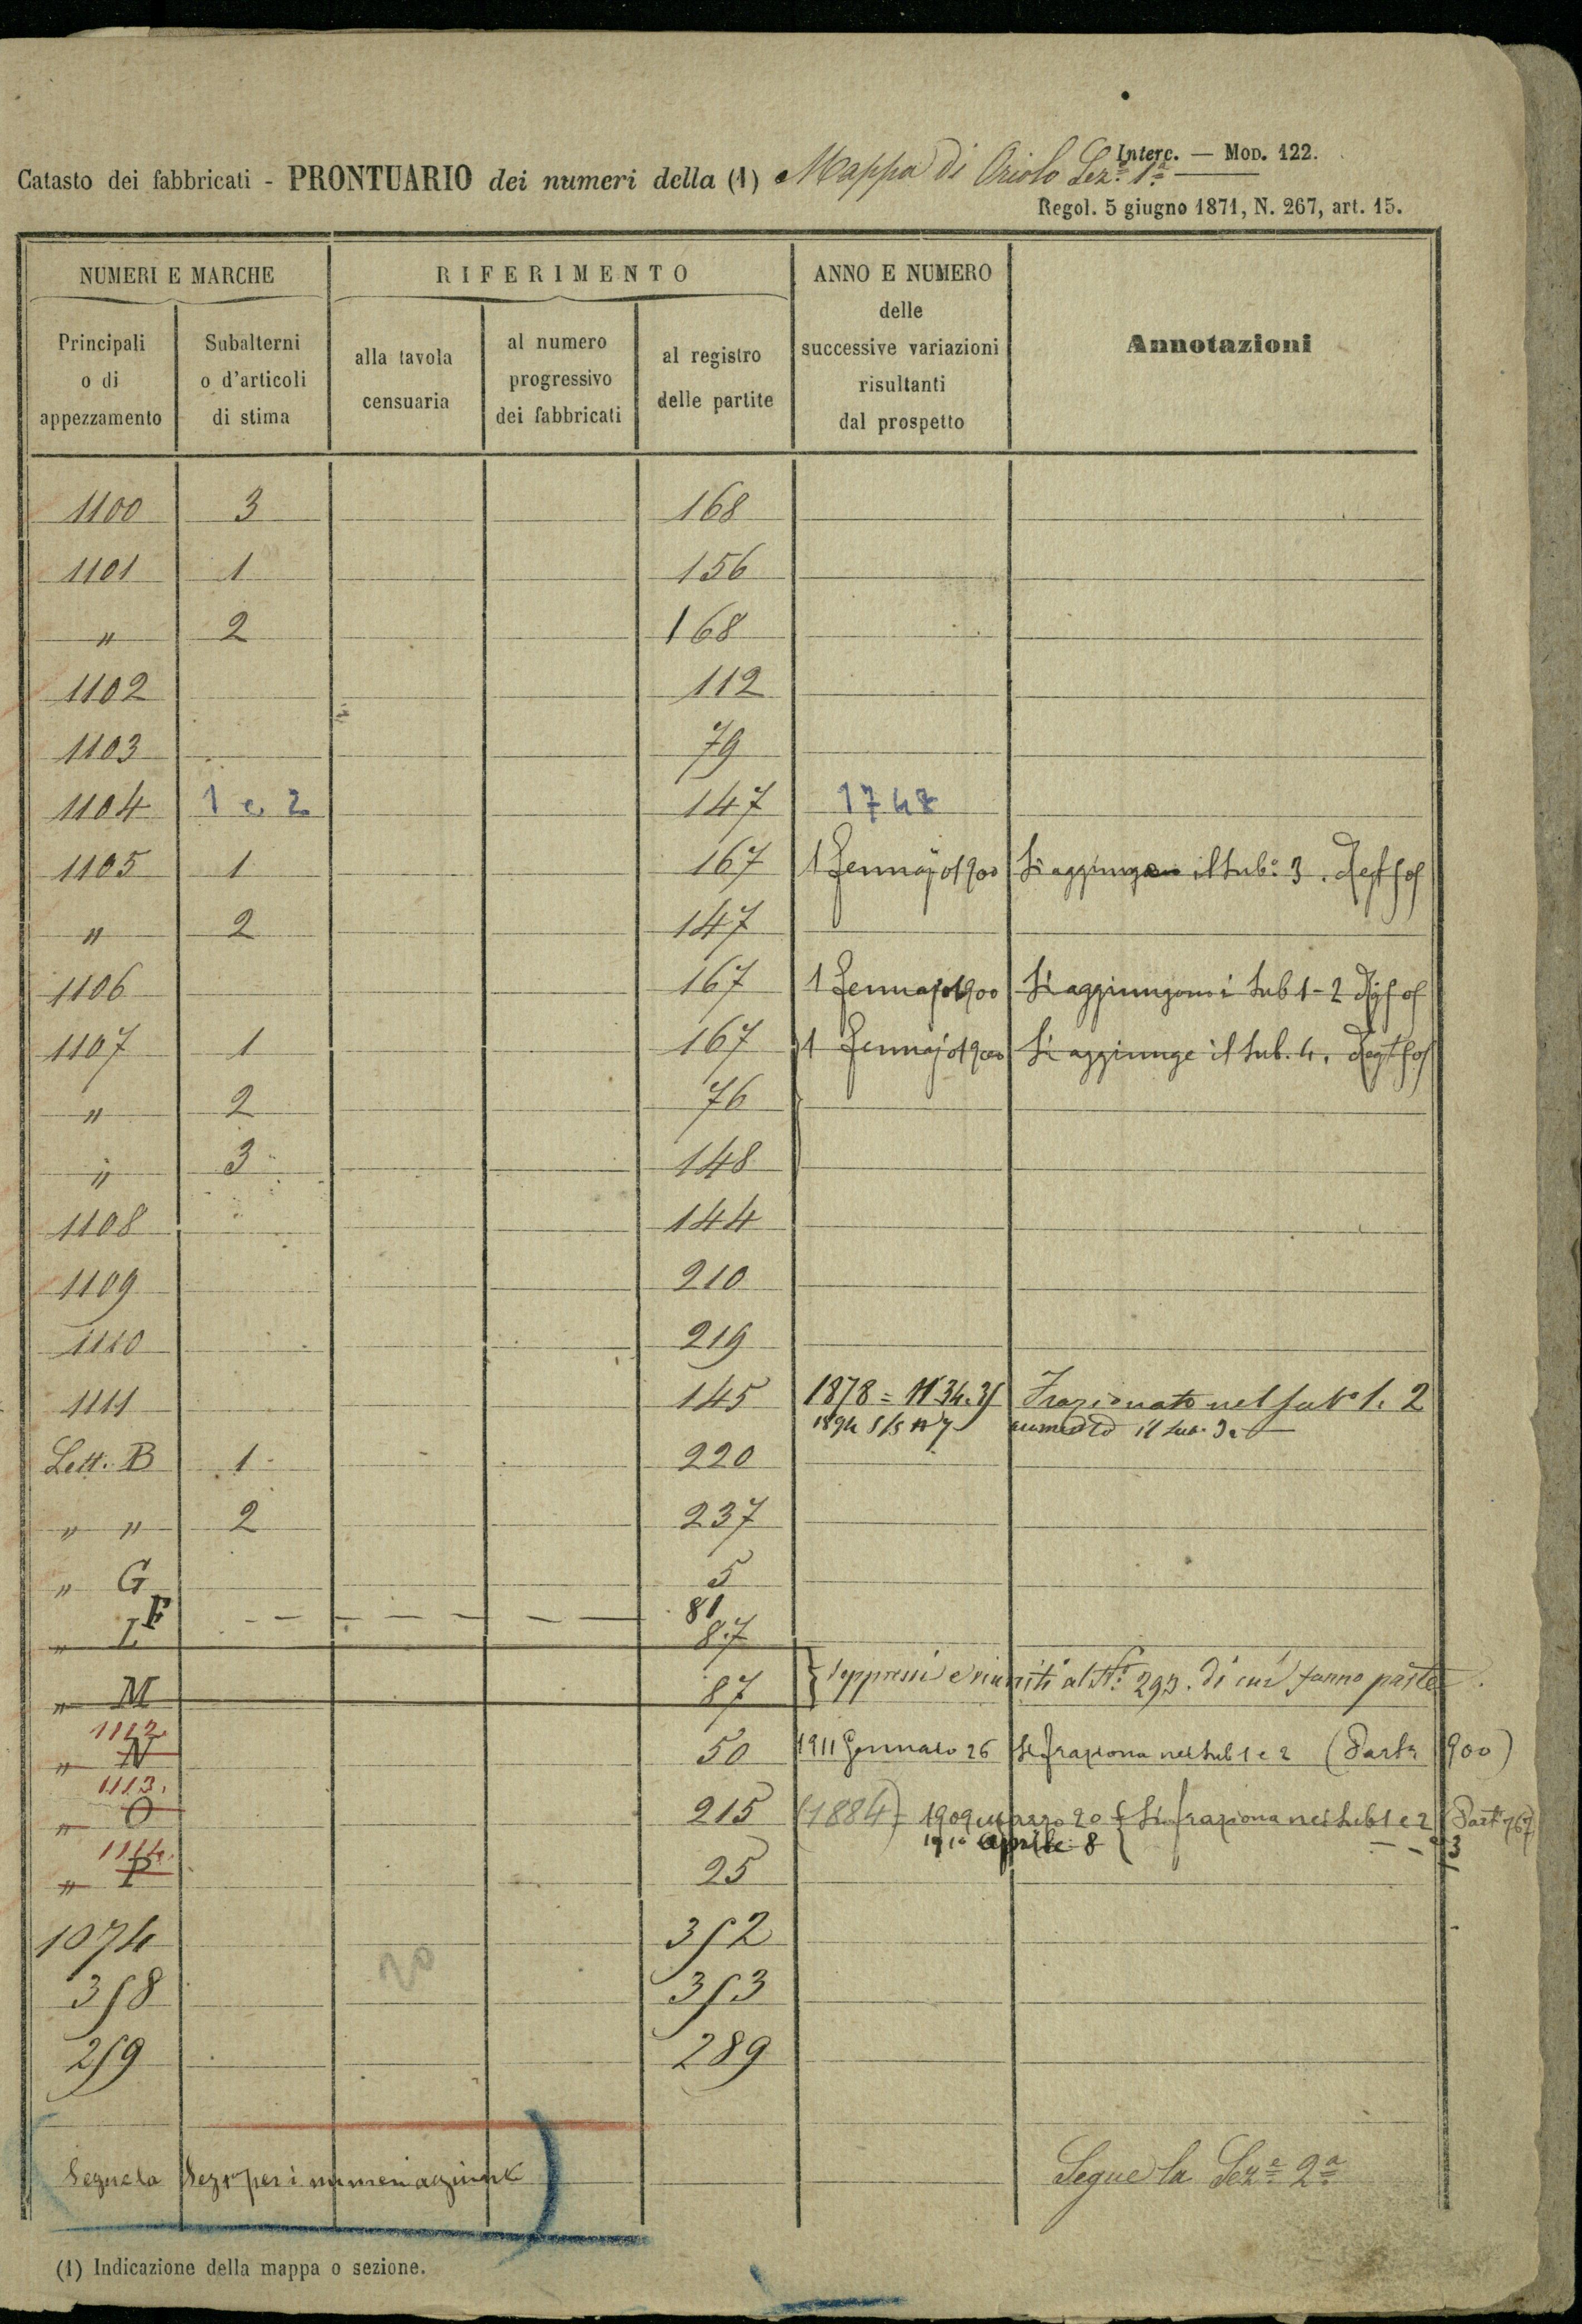 Interc. — Mod. 122.
Catasto dei fabbricati - PRONTUARIO dei numeri della (1) Mappa di Oriolo Sez.e 1.a
Regol. 5 giugno 1871, N. 267, art. 15.
NUMERI E MARCHE RIFERIMENTO ANNO E NUMERO delle successive variazioni risultanti dal prospetto Annotazioni
Principali o di appezzamento Subalterni o d'articoli di stima alla tavola censuaria al numero progressivo dei fabbricati al registro delle partite
1100 3 168
1101 1 156
" 2 168
1102 112
1103 79
1104 1 e 2 147 174
1105 1 167 1 Gennajo 1900 Si aggiunge il Sub.o 3.
" 2 147
1106 167 1 Gennajo 1900 Si aggiungono i Sub 1-2
1107 1 167 1 Gennajo 1900 Si aggiunge il Sub. 4.
" 2 76
" 3 148
1108 144
1109 210
1110 219
1111 145 1878 = N 34.35 Frazionato nel sub.o 1. 2
il sub. 3
Lett. B 1 220
" " 2 237
" G 5
F — — — — — — 81
" L 87
" M 87 Soppressi e riuniti al N.o 293. di cui fanno parte
1112.
" N 50 1911 Gennaio 26 Si fraziona nei Sub 1 e 2 (Part.a 900)
1113.
" O 215 (1884) - 1909 marzo 20 Si fraziona nei Sub 1 e 2 (Part. 767)
1910 Aprile 8 — — 3
1114.
" P 25
1074 352
20
358 353
259 289
Segue la Sez.e per i numeri aggiunti
Segue la Sez.e 2.a
(1) Indicazione della mappa o sezione.